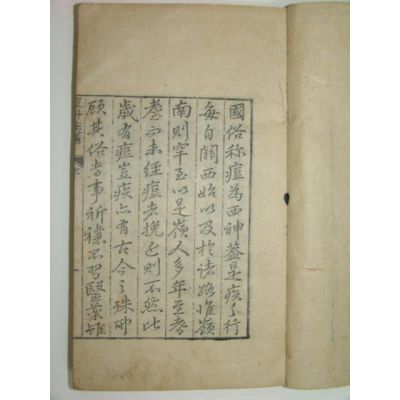 國俗称痘為西神盖是疾之行
每自關西始以及於諸路惟嶺
南則罕至以是嶺人多年至耆
耋而未經痘者挽近則不然比
歲有痘豈疾亦有古今之殊耶
顧其俗专事祈禳不習醫藥雖